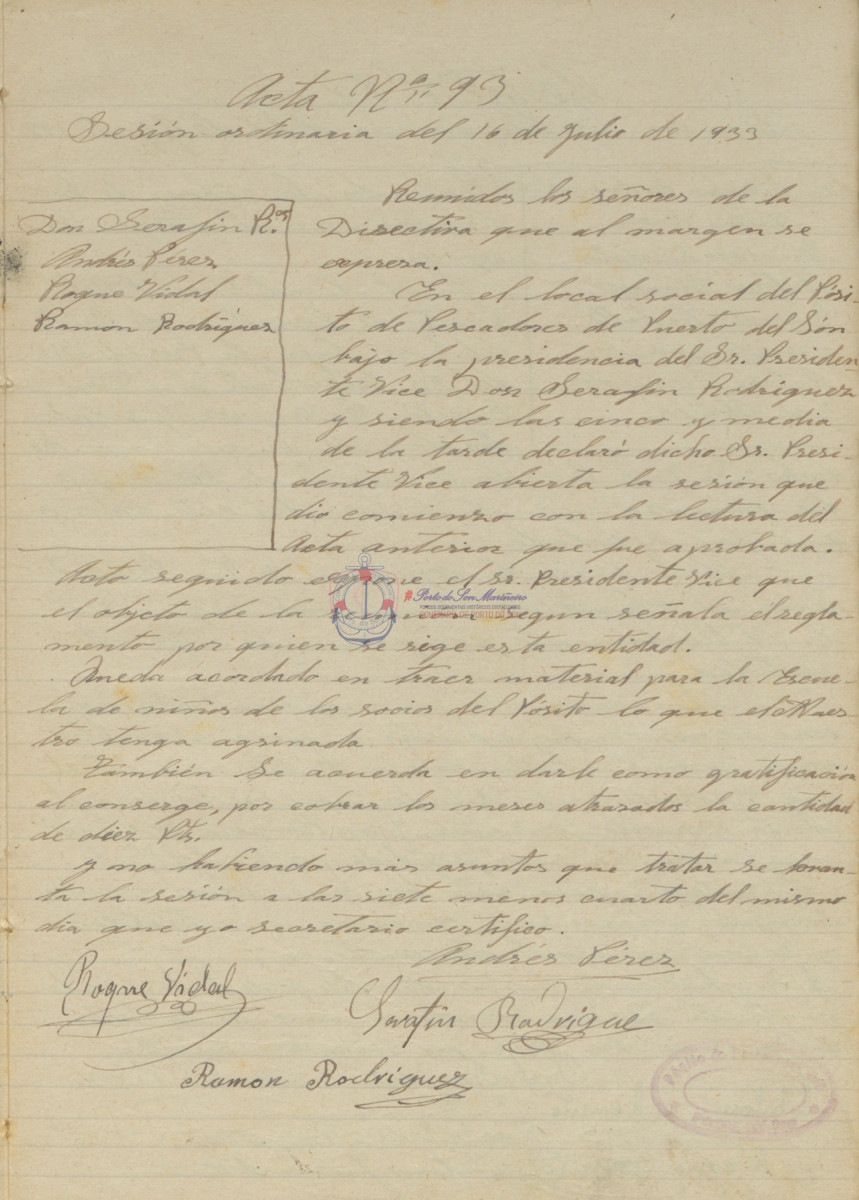 Acta Nº 93
Sesión ordinaria del 16 de Julio de 1933
Don Serafin R.os
Andrés Perez
Roque Vidal
Ramón Rodríguez
Reunidos los señores de la
Directiva que al margen se
expresa.
En el local social del Pósi-
to de Pescadores de Puerto del Són
bajo la presidencia del Sr. Presiden-
te Vice Don Serafin Rodriguez
y siendo las cinco y media
de la tarde declaró dicho Sr. Presi-
dente Vice abierta la sesión que
dio comienzo con la lectura del
Acta anterior que fue aprobada.
Acto seguido expone el Sr. Presidente Vice que
el objeto de la segun señala el regla-
mento por quien se rige esta entidad.
Queda acordado en traer material para la Escue-
la de niños de los socios del Pósito lo que el Maes-
tro tenga agsinada
También se acuerda en darle como gratificación
al conserge, por cobrar los meses atrazados la cantidad
de diez Pts.
y no habiendo más asuntos que tratar se levan-
ta la sesión a las siete menos cuarto del mismo
día que yo secretario certifico.
Andrés Pérez
Roque Vidal
Serafin Rodrigue
Ramon Rodriguez
Porto do Son Mariñeiro